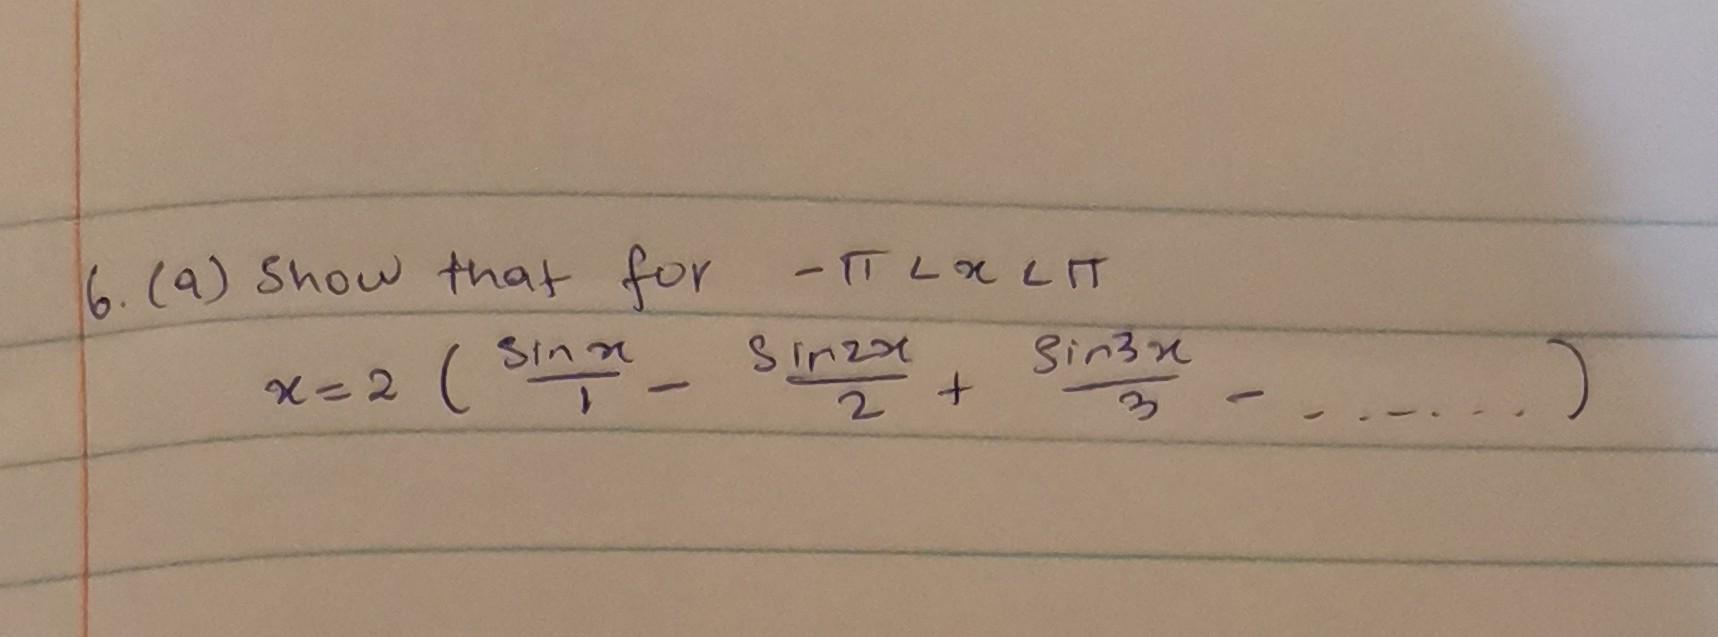 6. (a) Show that for -π < x < π
x = 2 ( sin x / 1 - sin 2x / 2 + sin 3x / 3 - ....... )